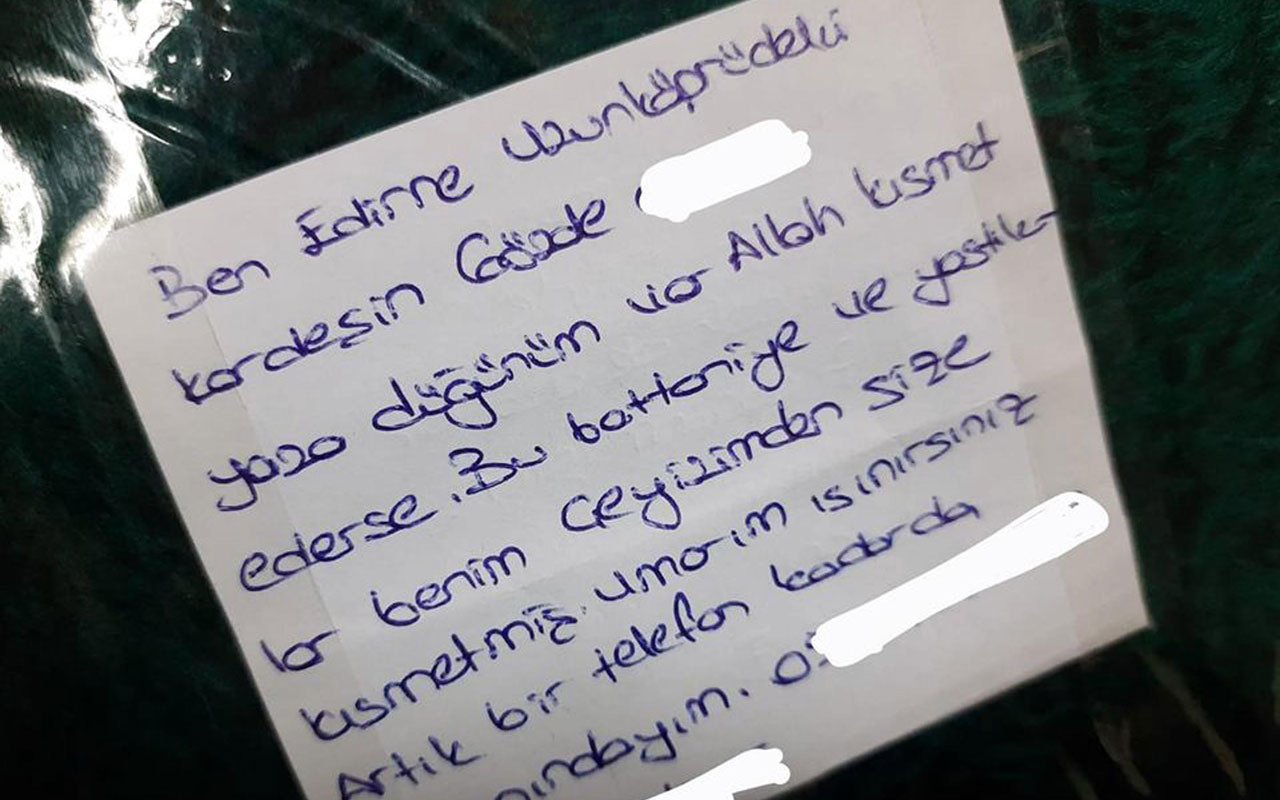 Ben Edirne Uzunköprüdeki
kardeşin Gözde
yaza düğünüm var Allah kısmet
ederse. Bu battaniye ve yastık-
lar benim çeyizimden size
kısmetmiş. umarım ısınırsınız
Artık bir telefon kadar da
nındayım. 05